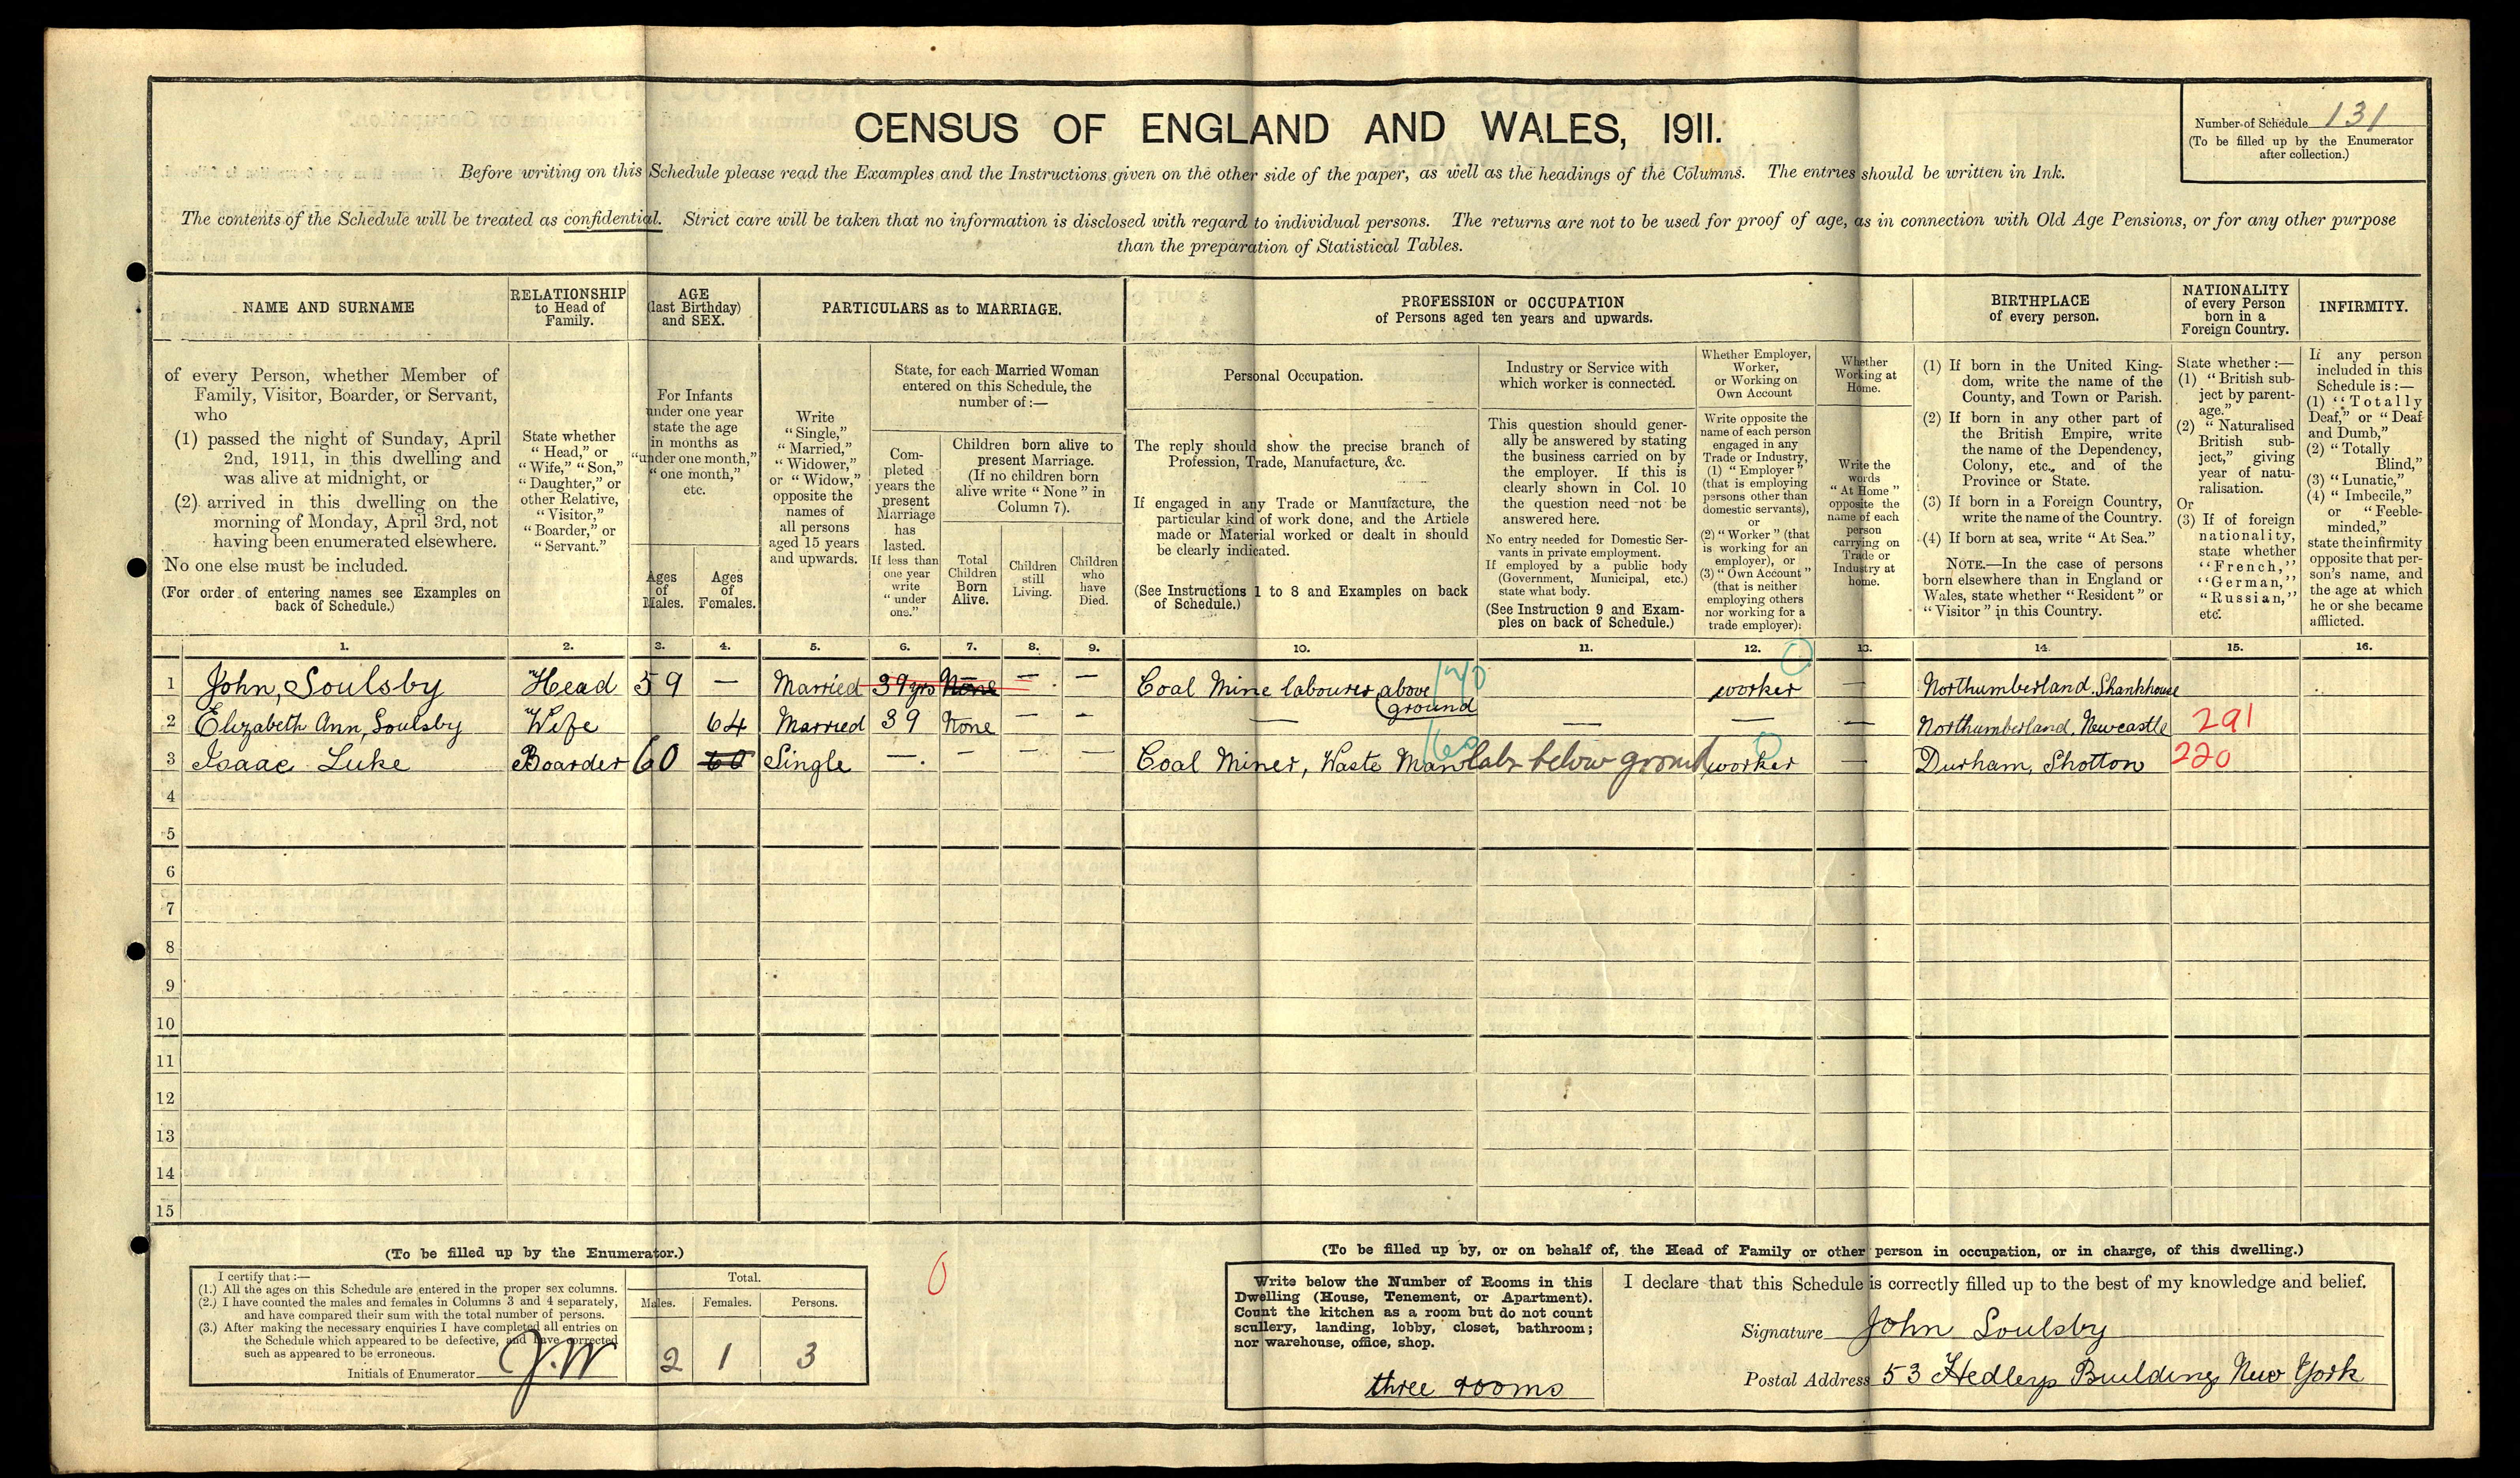 CENSUS OF ENGLAND AND WALES, 1911.
Number of Schedule 131
(To be filled up by the Enumerator
after collection.)
Before writing on this Schedule please read the Examples and the Instructions given on the other side of the paper, as well as the headings of the Columns. The entries should be written in Ink.
The contents of the Schedule will be treated as confidential. Strict care will be taken that no information is disclosed with regard to individual persons. The returns are not to be used for proof of age, as in connection with Old Age Pensions, or for any other purpose
than the preparation of Statistical Tables.
NAME AND SURNAME
of every Person, whether Member of
Family, Visitor, Boarder, or Servant,
who
(1) passed the night of Sunday, April
2nd, 1911, in this dwelling and
was alive at midnight, or
(2) arrived in this dwelling on the
morning of Monday, April 3rd, not
having been enumerated elsewhere.
No one else must be included.
(For order of entering names see Examples on
back of Schedule.)
RELATIONSHIP
to Head of
Family.
State whether
"Head," or
"Wife," "Son,"
"Daughter," or
other Relative,
"Visitor,"
"Boarder," or
"Servant."
AGE
(last Birthday)
and SEX.
For Infants
under one year
state the age
in months as
"under one month,"
"one month,"
etc.
Ages
of
Males.
Ages
of
Females.
PARTICULARS as to MARRIAGE.
Write
"Single,"
"Married,"
"Widower,"
or "Widow,"
opposite the
names of
all persons
aged 15 years
and upwards.
State, for each Married Woman
entered on this Schedule, the
number of:—
Com-
pleted
years the
present
Marriage
has
lasted.
If less than
one year
write
"under
one."
Children born alive to
present Marriage.
(If no children born
alive write "None" in
Column 7).
Total
Children
Born
Alive.
Children
still
Living.
Children
who
have
Died.
PROFESSION or OCCUPATION
of Persons aged ten years and upwards.
Personal Occupation.
The reply should show the precise branch of
Profession, Trade, Manufacture, &c.
If engaged in any Trade or Manufacture, the
particular kind of work done, and the Article
made or Material worked or dealt in should
be clearly indicated.
(See Instructions 1 to 8 and Examples on back
of Schedule.)
Industry or Service with
which worker is connected.
This question should gener-
ally be answered by stating
the business carried on by
the employer. If this is
clearly shown in Col. 10
the question need not be
answered here.
No entry needed for Domestic Ser-
vants in private employment.
If employed by a public body
(Government, Municipal, etc.)
state what body.
(See Instruction 9 and Exam-
ples on back of Schedule.)
Whether Employer,
Worker,
or Working on
Own Account
Write opposite the
name of each person
engaged in any
Trade or Industry,
(1) "Employer"
(that is employing
persons other than
domestic servants),
or
(2) "Worker" (that
is working for an
employer), or
(3) "Own Account"
(that is neither
employing others
nor working for a
trade employer).
Whether
Working at
Home.
Write the
words
"At Home"
opposite the
name of each
person
carrying on
Trade or
Industry at
home.
BIRTHPLACE
of every person.
(1) If born in the United King-
dom, write the name of the
County, and Town or Parish.
(2) If born in any other part of
the British Empire, write
the name of the Dependency,
Colony, etc., and of the
Province or State.
(3) If born in a Foreign Country,
write the name of the Country.
(4) If born at sea, write "At Sea."
NOTE.—In the case of persons
born elsewhere than in England or
Wales, state whether "Resident" or
"Visitor" in this Country.
NATIONALITY
of every Person
born in a
Foreign Country.
State whether:—
(1) "British sub-
ject by parent-
age."
(2) "Naturalised
British sub-
ject," giving
year of natu-
ralisation.
Or
(3) If of foreign
nationality,
state whether
"French,"
"German,"
"Russian,"
etc.
INFIRMITY.
If any person
included in this
Schedule is:—
(1) "Totally
Deaf," or "Deaf
and Dumb,"
(2) "Totally
Blind,"
(3) "Lunatic,"
(4) "Imbecile,"
or "Feeble-
minded,"
state the infirmity
opposite that per-
son's name, and
the age at which
he or she became
afflicted.
1. 2. 3. 4. 5. 6. 7. 8. 9. 10. 11. 12. 13. 14. 15. 16.
1 John, Soulsby Head 59 — Married 39 yrs None — — Coal Mine labourer above ground worker — Northumberland. Shankhouse
2 Elizabeth Ann, Soulsby Wife 64 Married 39 None — - — — — — Northumberland, Newcastle 291
3 Isaac Luke Boarder 60 60 Single — — — — Coal Miner, Waste Man labr below ground worker — Durham, Shotton 220
4
5
6
7
8
9
10
11
12
13
14
15
(To be filled up by the Enumerator.)
I certify that:—
(1.) All the ages on this Schedule are entered in the proper sex columns.
(2.) I have counted the males and females in Columns 3 and 4 separately,
and have compared their sum with the total number of persons.
(3.) After making the necessary enquiries I have completed all entries on
the Schedule which appeared to be defective, and have corrected
such as appeared to be erroneous.
Initials of Enumerator J.W
Total.
Males. Females. Persons.
2 1 3
0
(To be filled up by, or on behalf of, the Head of Family or other person in occupation, or in charge, of this dwelling.)
Write below the Number of Rooms in this
Dwelling (House, Tenement, or Apartment).
Count the kitchen as a room but do not count
scullery, landing, lobby, closet, bathroom;
nor warehouse, office, shop.
three rooms
I declare that this Schedule is correctly filled up to the best of my knowledge and belief.
Signature John Soulsby
Postal Address 53 Hedleys Buildings New York